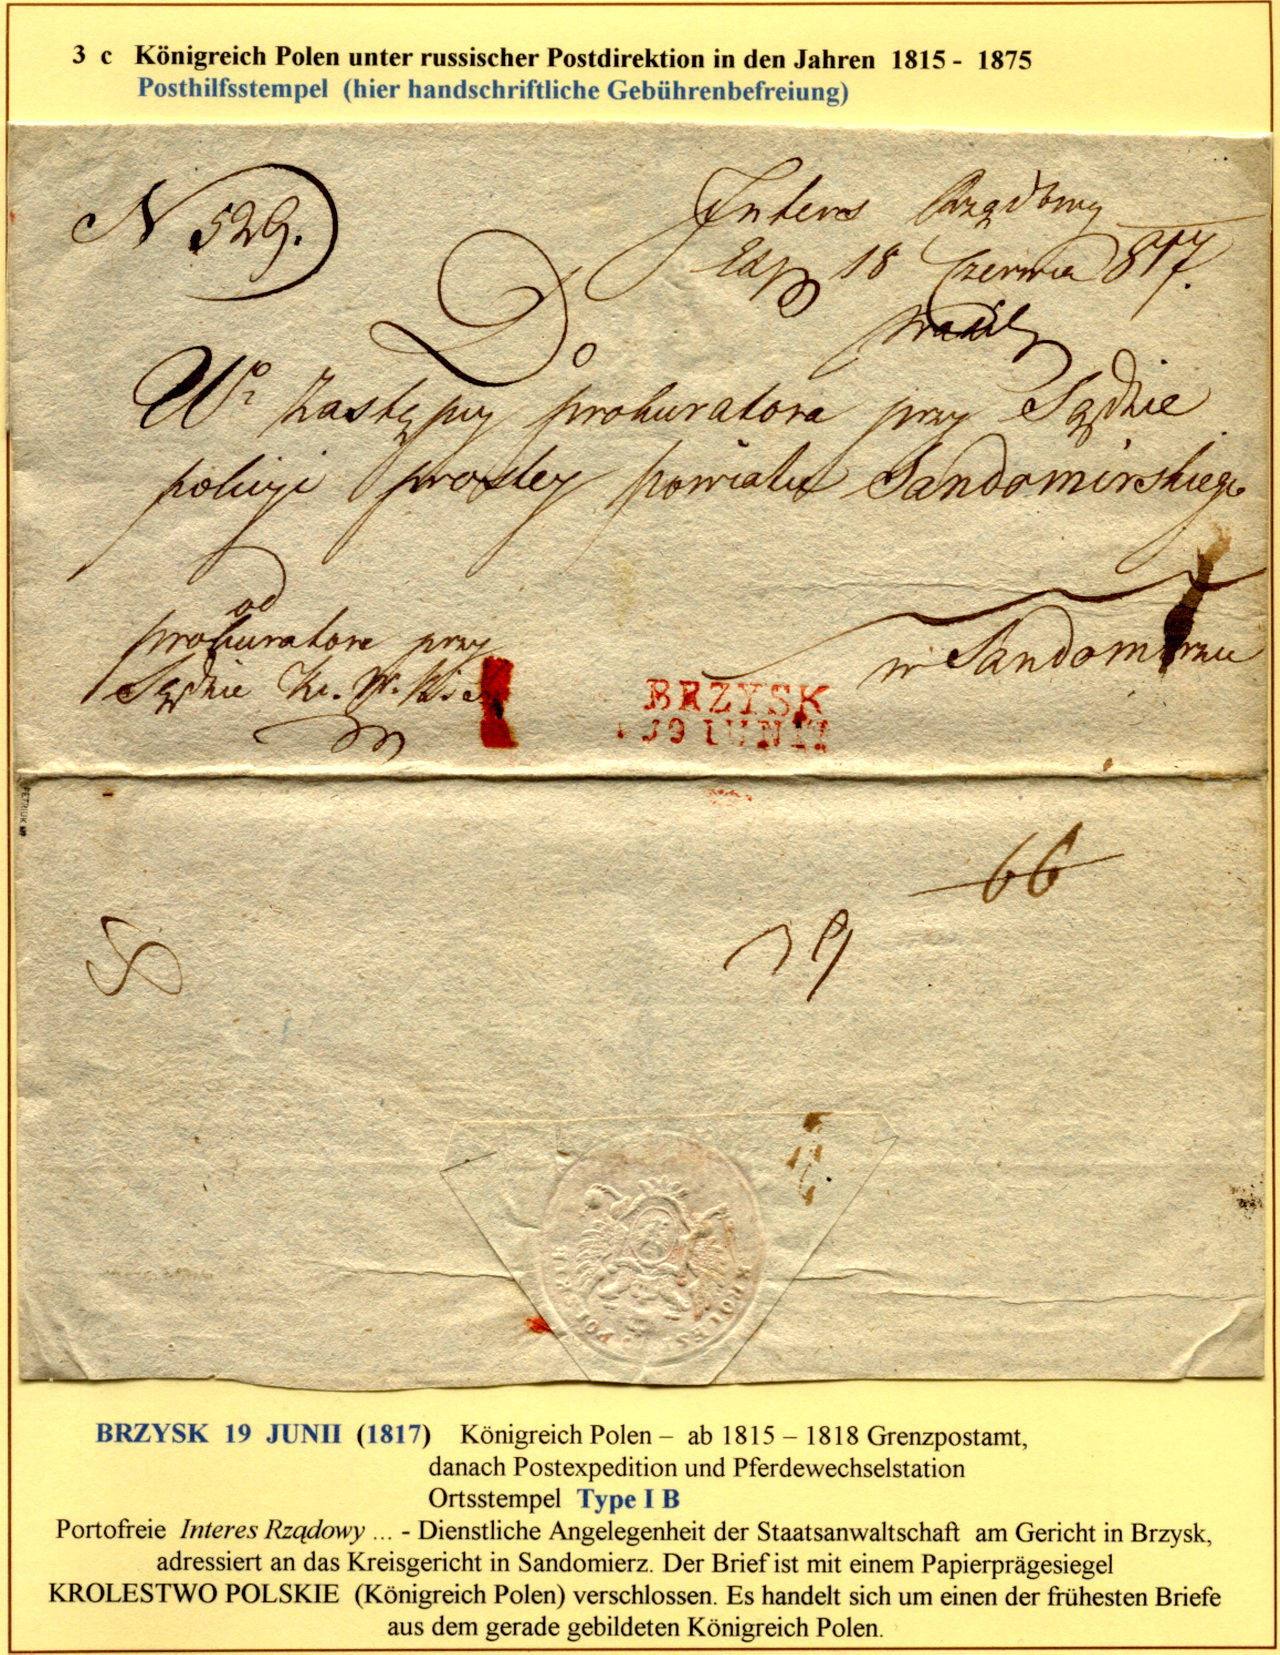 3 c Königreich Polen unter russischer Postdirektion in den Jahren 1815 - 1875
Posthilfsstempel (hier handschriftliche Gebührenbefreiung)
N 529.
Interes Rządowy
Exp 18 Czerwca 817.
Do
Wo Zastępcy prokuratora przy Sądzie
policyi prostey powiatu Sandomirskiego
od
prokuratora przy
Sądzie
w Sandomirzu
BRZYSK
19 IUNII
PETRIUK
66
KROLEST POLSKIE
BRZYSK 19 JUNII (1817) Königreich Polen – ab 1815 – 1818 Grenzpostamt,
danach Postexpedition und Pferdewechselstation
Ortsstempel Type I B
Portofreie Interes Rządowy ... - Dienstliche Angelegenheit der Staatsanwaltschaft am Gericht in Brzysk,
adressiert an das Kreisgericht in Sandomierz. Der Brief ist mit einem Papierprägesiegel
KROLESTWO POLSKIE (Königreich Polen) verschlossen. Es handelt sich um einen der frühesten Briefe
aus dem gerade gebildeten Königreich Polen.